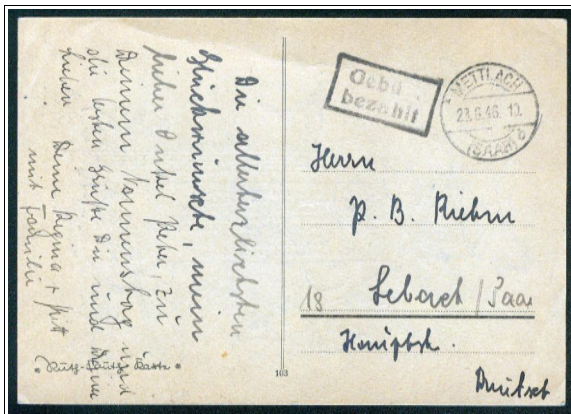 Die allerherzlichsten
Glückwünsche, mein
lieber Onkel Peter, zu
Deinem Namenstag und
die besten Grüße Dir und Deinen
Lieben Deine Regina + Pitt
mit Familie
Gebü
bezahlt
METTLACH
23.6.46. 10.
(SAAR) b
Herrn
P. B. Riehm
18 Lebach / Saar
Hauptstr.
103